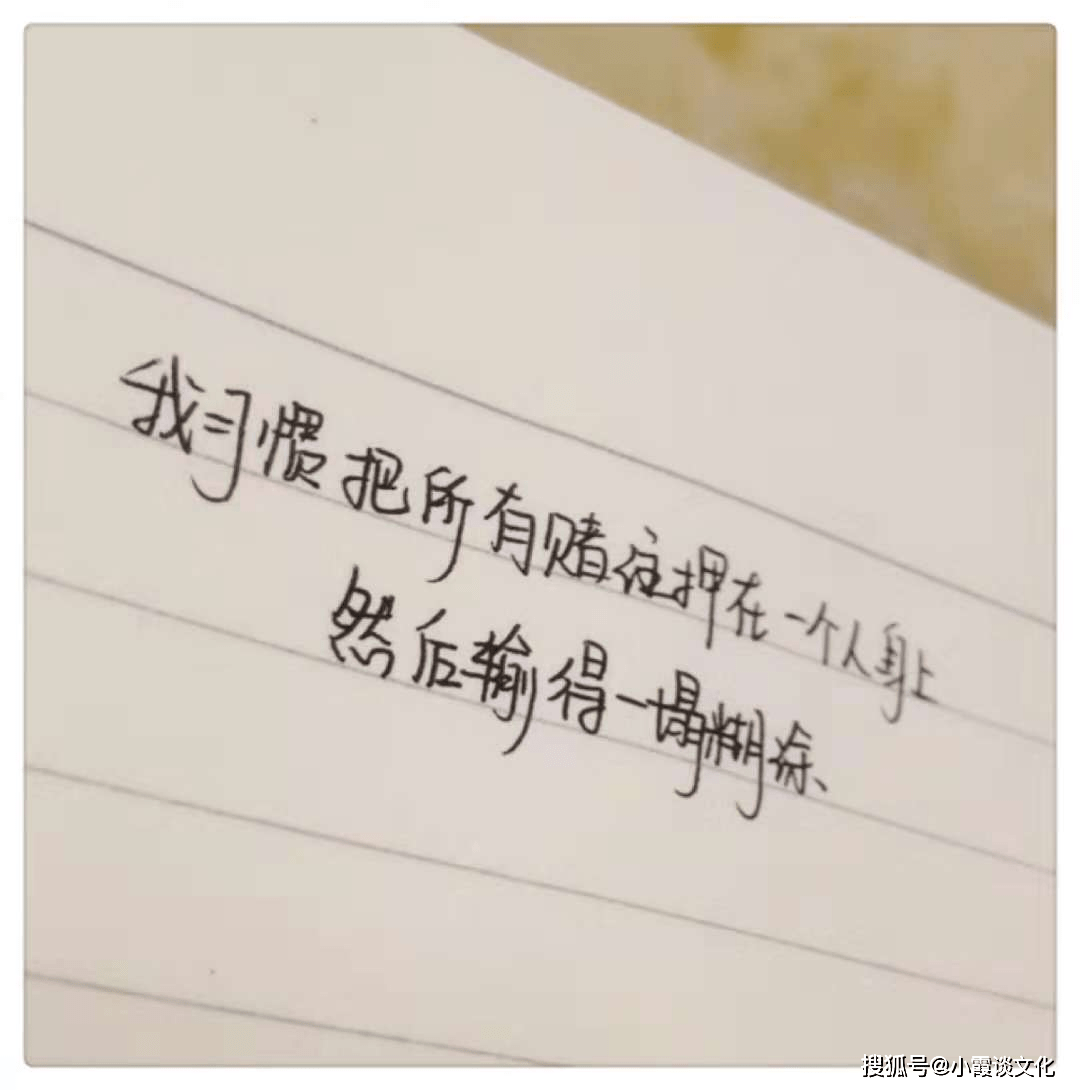 我习惯把所有赌住押在一个人身上
然后输得一塌糊涂、
搜狐号@小霞谈文化